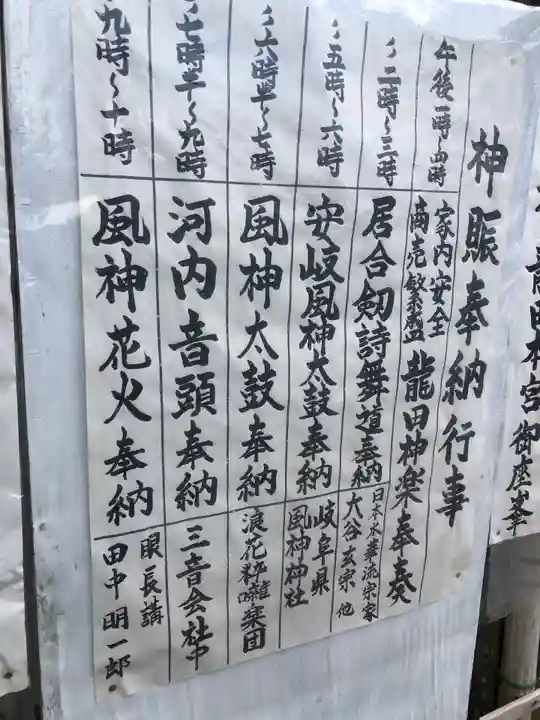 神賑奉納行事
午後一時〜四時
家内安全
商売繁盛
龍田神楽奉奏
〃二時〜三時
居合剱詩舞道奉納
日本水華流宗家
大谷玄宗 他
〃五時〜六時
安岐風神太鼓奉納
岐阜県
風神神社
〃六時半〜七時
風神太鼓奉納
浪花粋囃楽団
〃七時半〜九時
河内音頭奉納
三音会社中
九時〜十時
風神花火奉納
眼長講
田中明一郎
龍田本宮御座峯